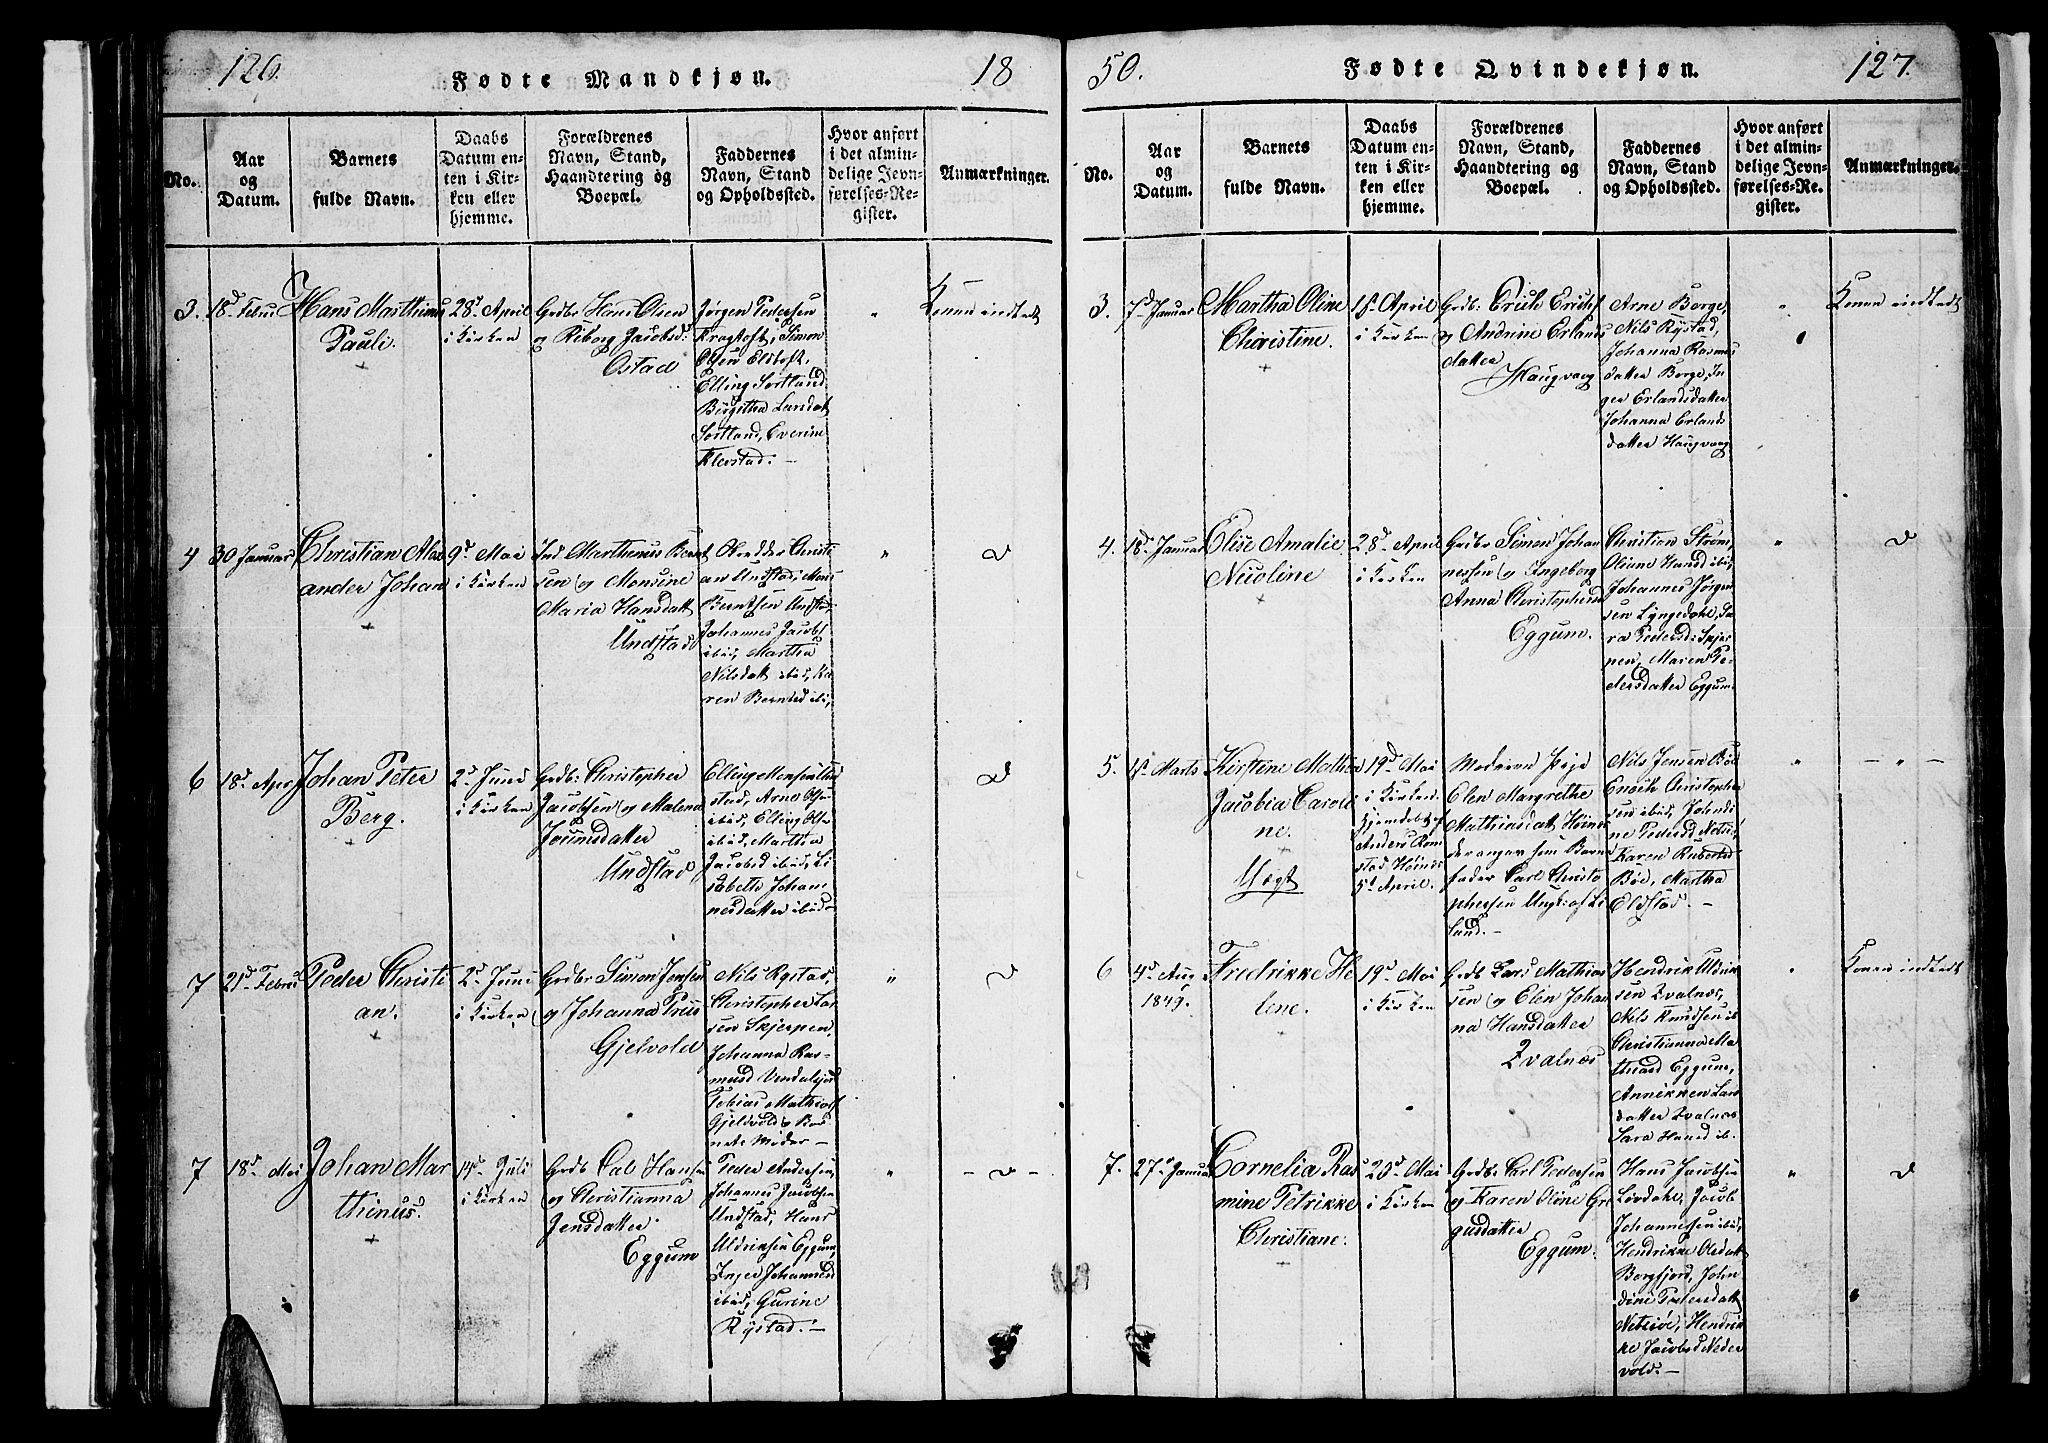 126.
Fødte Mandkjøn.
18
No.
Aar
og
Datum.
Barnets
fulde Navn.
Daabs
Datum en-
ten i Kir-
ken eller
hjemme.
Forældrenes
Navn, Stand,
Haandtering og
Boepæl.
Faddernes
Navn, Stand
og Opholdssted.
Hvor anført
i det almin-
delige Jevn-
førelses-Re-
gister.
Anmærkninger.
3.
18d Febru
Hans Marthinus
Pauli.
28d April
i Kirken
Grdbr Hans Olsen
og Riborg Jacobsd:
Ostad
Jørgen Pedersen
Kragtoft, Simon
Olsen Eldtoft,
Elling Sortland
Birgitha Larsdat
Sortland, Everine
Klevstad. –
"
Konen indledt
4
30 Januar
Christian Alex
ander Johan
9d Mai
i Kirken
Ind Marthinus Bernt
sen og Monsine
Maria Hansdatt
Undstad
Christi
an Undstad, Mons
Berntsen Undstad
Johannes Jacobs
ibid, Martha
Nilsdatt ibid, Ka
ren Berntsd ibid,
"
d
6
18d Apr
Johan Peter
Berg.
2d Juni
i Kirken
Grdb: Christopher
Jacobsen og Malena
Joensdatter
Undstad
Elling Monsen Und
stad, Arne
ibid, Elling
ibid, Martha
Jacobsd ibid, Li
sabeth Johan
nesdatter ibid
d
7
21d Febru
Peder Christi
an.
2d Juni
i Kirken
Grdbr Simon Jensen
og Johanna
Gjelvold
Nils Rystad,
Christopher Lar
sen Skjerpen,
Johanna Ras-
musd Vendalsjord
Tobias Mathias
Gjelvold og Bar
nets Moder –
"
d
7
18d Mai
Johan Mar
thinus.
14d Juli
i Kirken
Grdb Hansen
og Christianna
Jensdatter
Eggum
Peder Andersen,
Johannes Jacobsen
Undstad, Hans
Uldriksen Eggum,
Inger Johannesd
ibid, Gurine
Rystad. –
"
– d –
50.
Fødte Qvindekjøn.
127.
No.
Aar
og
Datum.
Barnets
fulde Navn.
Daabs
Datum en-
ten i Kir-
ken eller
hjemme.
Forældrenes
Navn, Stand,
Haandtering og
Boepæl.
Faddernes
Navn, Stand
og Opholdssted.
Hvor anført
i det almin-
delige Jevn-
førelses-Re-
gister.
Anmærkninger.
3.
7d Januar
Martha Oline
Christine.
1st April
i Kirken
Grdb: Erich Erichs
og Andrine Erlands
datter
Haugvaag
Arne Borge,
Nils Rystad,
Johanna Rasmus
datter Borge, In
ger Erlandsdatter
Johanna Erlands
datter Haugvaag
"
Konen indledt
4.
18d Januar
Elise Amalie
Nicoline
28d April
i Kirken
Grdbr Simon Johan
nessen og Ingeborg
Anna Christophersd
Eggum.
Christian Strøm,
Oliane Hansd ibid,
Johannes Jørgen
sen Lyngedahl, Sa
ra Pedersd: Skjer
pen, Maren Pe-
dersdatter Eggum
"
d
5.
1st Marts
Kirstine Mathea
Jacobia Caroli
ne.
Uægt
19d Mai
i Kirken.
hjemdøbt af
Anders Ram
stad, Høines
5d April.
Moderen Pige
Elen Margrethe
Mathiasdat Høines
der angav som Barne
fader Carl Christo
phersen Ungk: af Li
land. –
Nils Jensen Bøe
Enoch Christopher
sen ibid,
ne Pedersd
Karen
Bøe, Martha
Eldstad. –
"
– " –
6
4d Aug
1849.
Fredrikke He
lene.
19d Mai
i Kirken
Grdb Lars Mathias
sen og Elen Johan
na Hansdatter
Zvalnæs
Hendrik Uldrik
sen Zvalnæs,
Nils Knudsen ib
Christianna Ma
thiasd Eggum,
Annikken Lars
datter Zvalnæs
Sara Hansd ib.
"
Konen indledt
7.
27d Januar
Cornelia Ras
mine Petrikke
Christiane.
20d Mai
i Kirken
Grdb: Carl Pedersen
og Karen Oline Gre
gusdatter
Eggum.
Hans Jacobsen
Lordahl, Jacob
Johannesen ibid,
Hendrikke Olsdatt
Borgfjord, John
dine Pedersdatt
Hendrik
ke Jacobsd Neder
vold. –
"
d